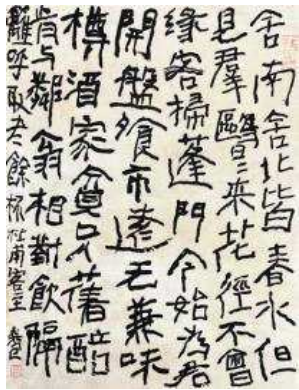 舍南舍北皆春水但
見群鷗日日来花徑不曾
緣客掃蓬門今始為君
開盤飧市遠无兼味
樽酒家貧只舊醅
肯與鄰翁相對飲隔
籬呼取盡餘杯杜甫客至